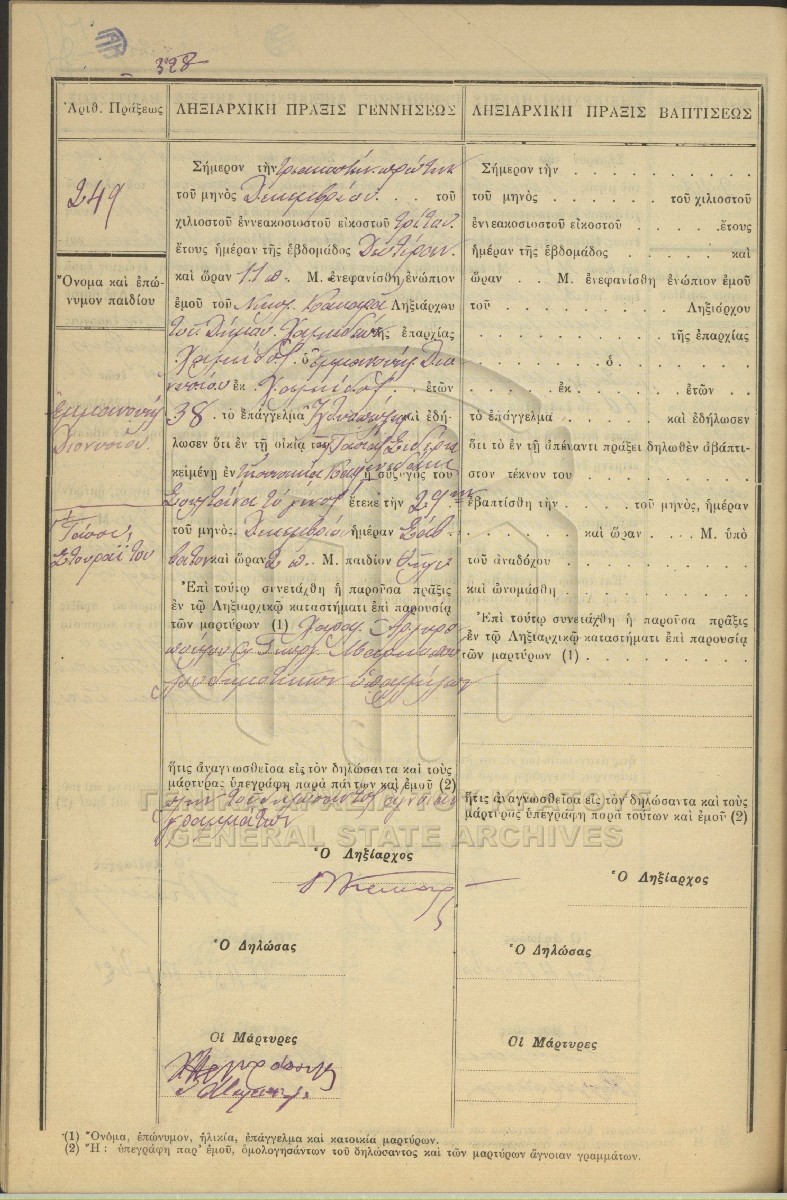 328
Ἀριθ. Πράξεως
ΛΗΞΙΑΡΧΙΚΗ ΠΡΑΞΙΣ ΓΕΝΝΗΣΕΩΣ
ΛΗΞΙΑΡΧΙΚΗ ΠΡΑΞΙΣ ΒΑΠΤΙΣΕΩΣ
249
Ὄνομα καὶ ἐπώ-
νυμον παιδίου
Ἐμμανουὴλ
Διονυσίου
Σήμερον τὴν τριακοστὴν πρώτην
τοῦ μηνὸς Δεκεμβρίου . . τοῦ
χιλιοστοῦ ἐννεακοσιοστοῦ εἰκοστοῦ τρίτου
ἔτους ἡμέραν τῆς ἑβδομάδος Δευτέραν
καὶ ὥραν 11 π. Μ. ἐνεφανίσθη ἐνώπιον
ἐμοῦ τοῦ Νικολ. Ληξιάρχου
τοῦ Δήμου Χαλκιδέων τῆς ἐπαρχίας
Χαλκίδος ὁ Ἐμμανουὴλ Διο
νυσίου ἐκ Χαλκίδος . . ἐτῶν
38 . τὸ ἐπάγγελμα καὶ ἐδή-
λωσεν ὅτι ἐν τῇ οἰκίᾳ του
κειμένῃ ἐν ἡ σύζυγός του
τὸ γένος ἔτεκε τὴν 29ην
τοῦ μηνὸς Δεκεμβρίου ἡμέραν Σάβ
βατον καὶ ὥραν 2 π. Μ. παιδίον θῆλυ
Ἐπὶ τούτῳ συνετάχθη ἡ παροῦσα πρᾶξις
ἐν τῷ Ληξιαρχικῷ καταστήματι ἐπὶ παρουσίᾳ
τῶν μαρτύρων (1) Χαραλ. Ἀργυρο
πούλου & Γεωργ.
δημοτικῶν ὑπαλλήλων
ἥτις ἀναγνωσθεῖσα εἰς τὸν δηλώσαντα καὶ τοὺς
μάρτυρας ὑπεγράφη παρὰ πάντων καὶ ἐμοῦ (2)
πλὴν τοῦ δηλώσαντος ἀγνοοῦντος
γραμμάτων
Ὁ Ληξίαρχος
Ὁ Δηλώσας
Οἱ Μάρτυρες
Σήμερον τὴν . . . . . . . . . .
τοῦ μηνὸς . . . . . . τοῦ χιλιοστοῦ
ἐννεακοσιοστοῦ εἰκοστοῦ . . . . . .ἔτους
ἡμέραν τῆς ἑβδομάδος . . . . . . καὶ
ὥραν . . Μ. ἐνεφανίσθη ἐνώπιον ἐμοῦ
τοῦ . . . . . . . . . . Ληξιάρχου
. . . . . . . . . . τῆς ἐπαρχίας
. . . . . . . . ὁ . . . . . . . .
. . . . . . ἐκ . . . . . . ἐτῶν . .
τὸ ἐπάγγελμα . . . . . . καὶ ἐδήλωσεν
ὅτι τὸ ἐν τῇ ἀπέναντι πράξει δηλωθὲν ἀβάπτι-
στον τέκνον του . . . . . . . . . .
ἐβαπτίσθη τὴν . . . . τοῦ μηνός, ἡμέραν
. . . . . . . καὶ ὥραν . . Μ. ὑπὸ
τοῦ ἀναδόχου . . . . . . . . . .
καὶ ὠνομάσθη . . . . . . . . . .
Ἐπὶ τούτῳ συνετάχθη ἡ παροῦσα πρᾶξις
ἐν τῷ Ληξιαρχικῷ καταστήματι ἐπὶ παρουσίᾳ
τῶν μαρτύρων (1) . . . . . . . . . .
ἥτις ἀναγνωσθεῖσα εἰς τὸν δηλώσαντα καὶ τοὺς
μάρτυρας ὑπεγράφη παρὰ τούτων καὶ ἐμοῦ (2)
Ὁ Ληξίαρχος
Ὁ Δηλώσας
Οἱ Μάρτυρες
GENERAL STATE ARCHIVES
(1) Ὄνομα, ἐπώνυμον, ἡλικία, ἐπάγγελμα καὶ κατοικία μαρτύρων.
(2) Ἤ : ὑπεγράφη παρ' ἐμοῦ, ὁμολογησάντων τοῦ δηλώσαντος καὶ τῶν μαρτύρων ἄγνοιαν γραμμάτων.